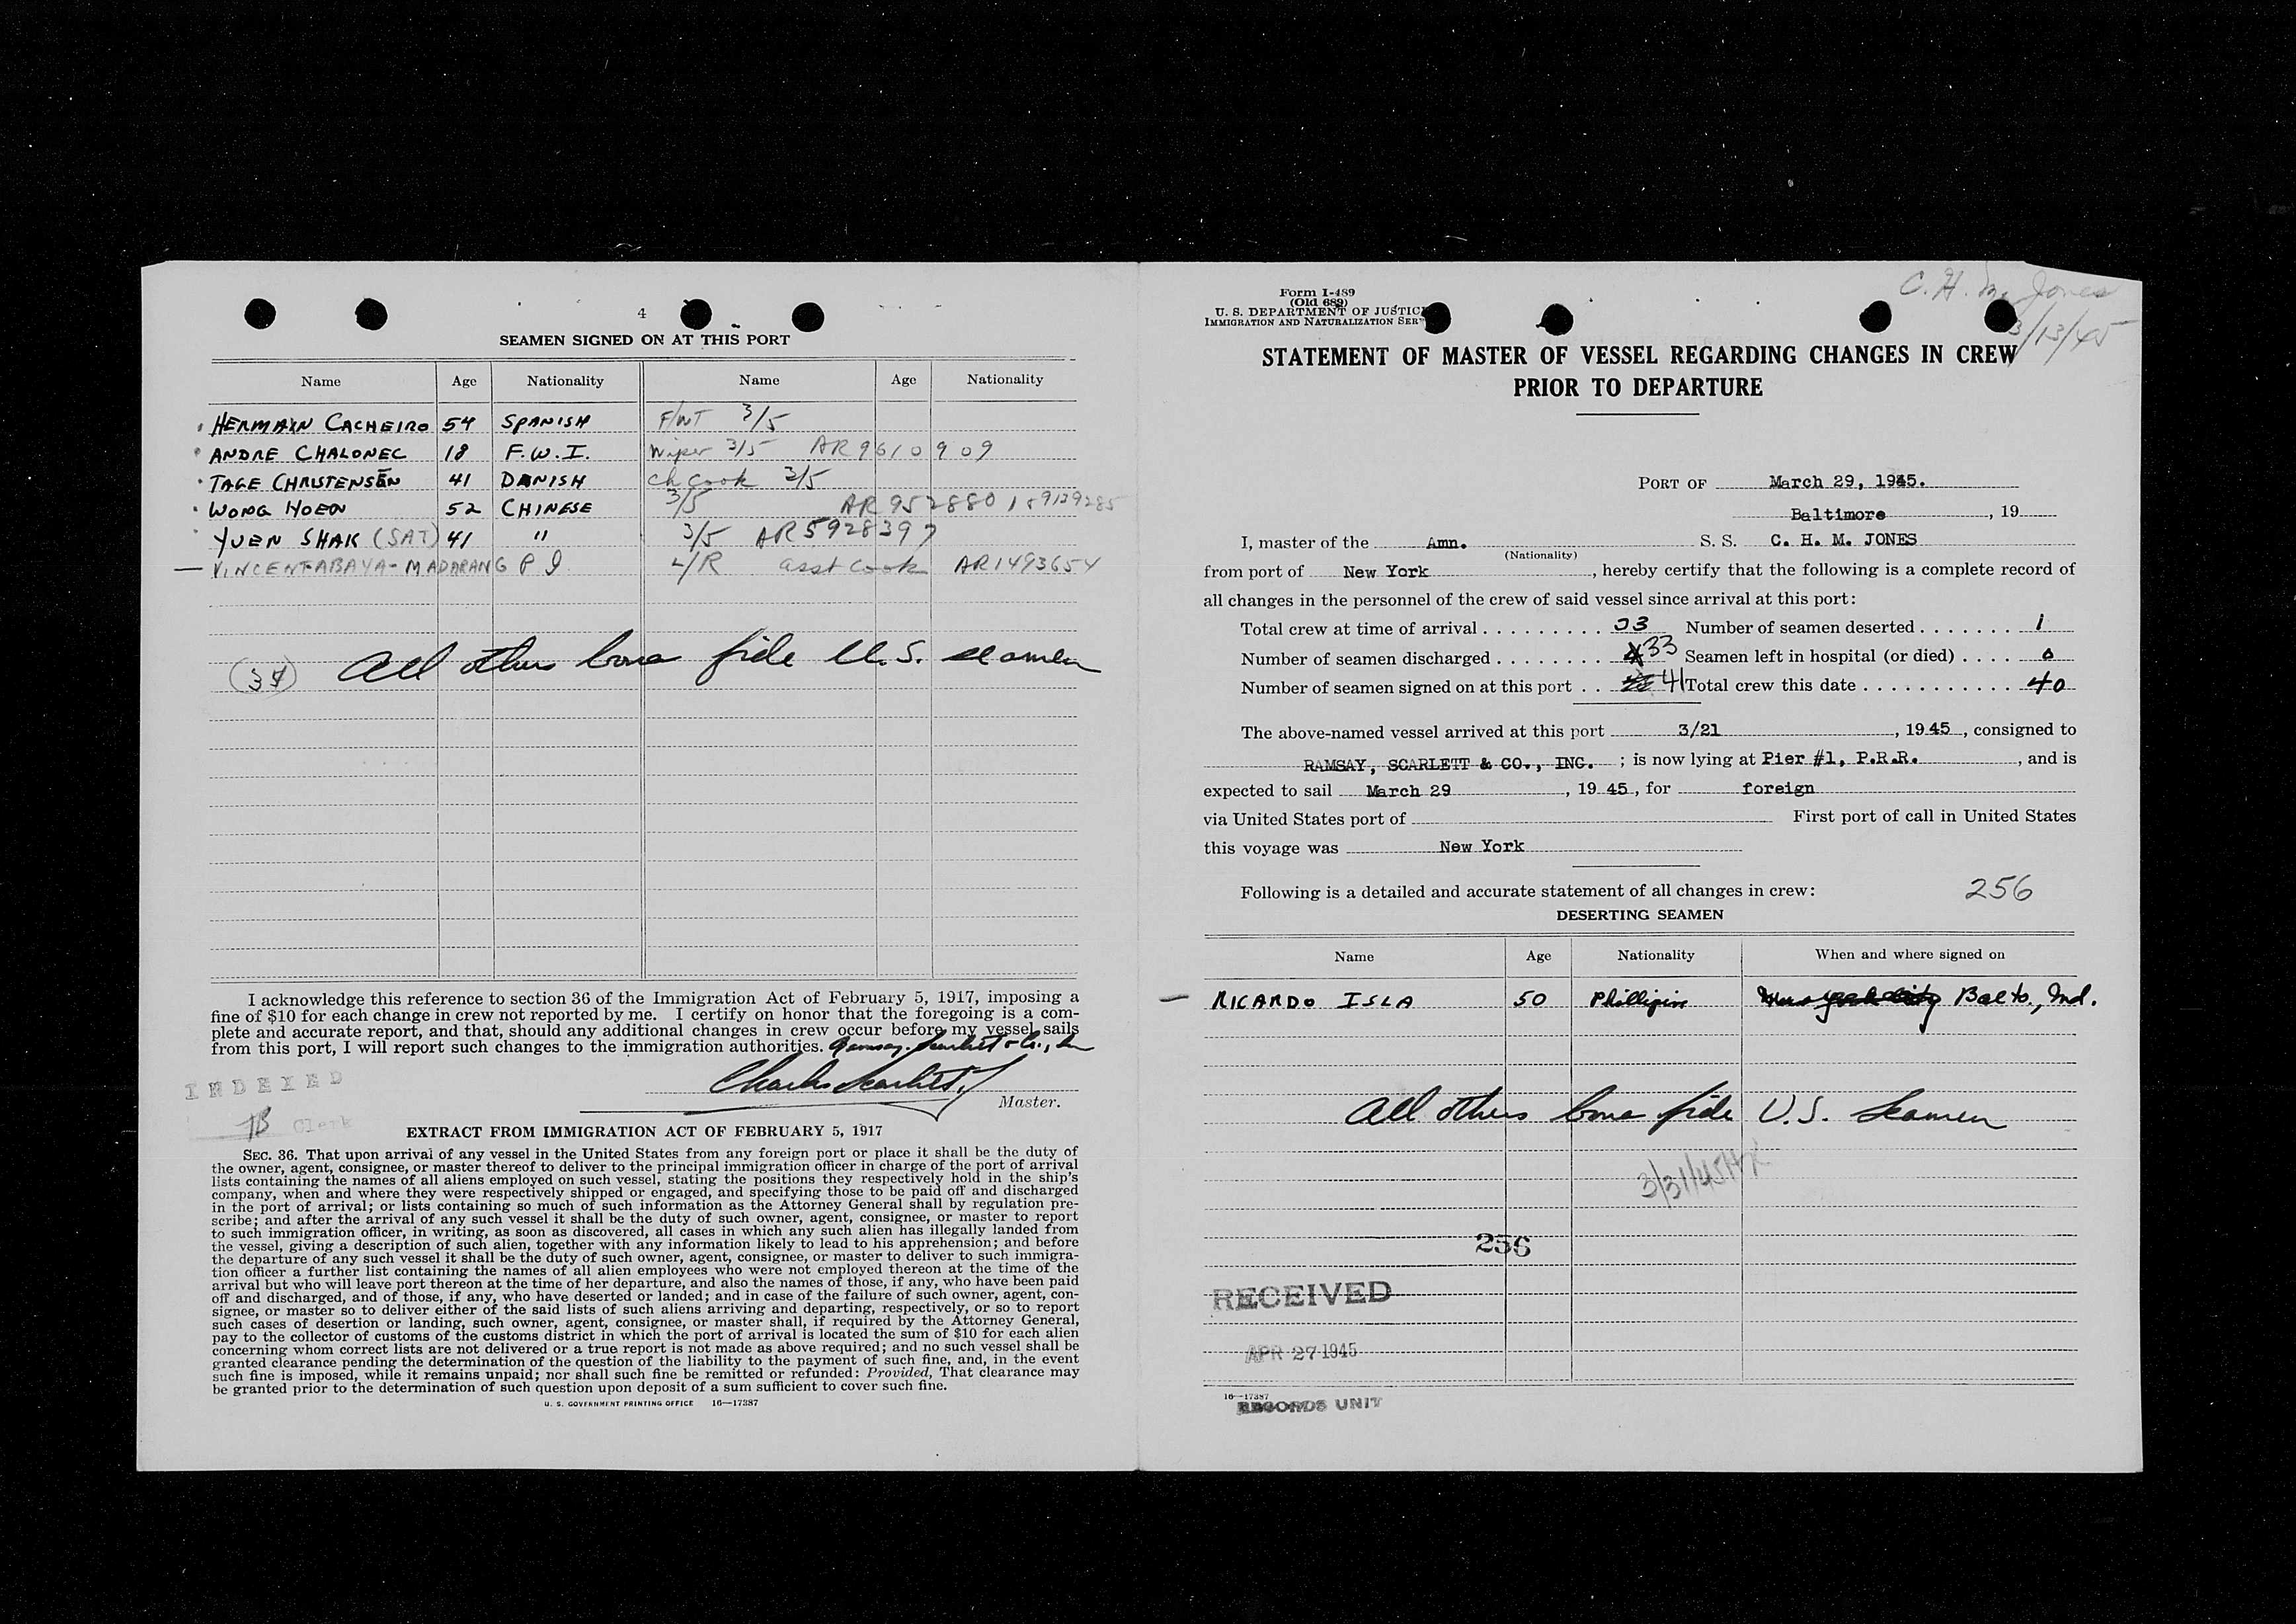 4
SEAMEN SIGNED ON AT THIS PORT
Name Age Nationality Name Age Nationality
HERMAIN CACHEIRO 54 SPANISH F/WT 3/5
ANDRE CHALONEC 18 F.W.I. Wiper 3/5 AR 9610909
TAGE CHRISTENSEN 41 DANISH Ch Cook 3/5
WONG HOEN 52 CHINESE 3/5 AR 9528801
YUEN SHAK (SAT) 41 " 3/5 AR 5928397
VINCENT ABAYA - MADARANG P I L/R asst Cook AR 1493654
All others bona fide U.S. seamen
I acknowledge this reference to section 36 of the Immigration Act of February 5, 1917, imposing a
fine of $10 for each change in crew not reported by me. I certify on honor that the foregoing is a com-
plete and accurate report, and that, should any additional changes in crew occur before my vessel sails
from this port, I will report such changes to the immigration authorities. Ramsay, Scarlett & Co., Inc
Charles Scarlett
Master.
INDEXED
Clerk
EXTRACT FROM IMMIGRATION ACT OF FEBRUARY 5, 1917
SEC. 36. That upon arrival of any vessel in the United States from any foreign port or place it shall be the duty of
the owner, agent, consignee, or master thereof to deliver to the principal immigration officer in charge of the port of arrival
lists containing the names of all aliens employed on such vessel, stating the positions they respectively hold in the ship's
company, when and where they were respectively shipped or engaged, and specifying those to be paid off and discharged
in the port of arrival; or lists containing so much of such information as the Attorney General shall by regulation pre-
scribe; and after the arrival of any such vessel it shall be the duty of such owner, agent, consignee, or master to report
to such immigration officer, in writing, as soon as discovered, all cases in which any such alien has illegally landed from
the vessel, giving a description of such alien, together with any information likely to lead to his apprehension; and before
the departure of any such vessel it shall be the duty of such owner, agent, consignee, or master to deliver to such immigra-
tion officer a further list containing the names of all alien employees who were not employed thereon at the time of the
arrival but who will leave port thereon at the time of her departure, and also the names of those, if any, who have been paid
off and discharged, and of those, if any, who have deserted or landed; and in case of the failure of such owner, agent, con-
signee, or master so to deliver either of the said lists of such aliens arriving and departing, respectively, or so to report
such cases of desertion or landing, such owner, agent, consignee, or master shall, if required by the Attorney General,
pay to the collector of customs of the customs district in which the port of arrival is located the sum of $10 for each alien
concerning whom correct lists are not delivered or a true report is not made as above required; and no such vessel shall be
granted clearance pending the determination of the question of the liability to the payment of such fine, and, in the event
such fine is imposed, while it remains unpaid; nor shall such fine be remitted or refunded: Provided, That clearance may
be granted prior to the determination of such question upon deposit of a sum sufficient to cover such fine.
U. S. GOVERNMENT PRINTING OFFICE 16—17387
C. H. M. Jones
3/13/45
Form I-489
(Old 689)
U. S. DEPARTMENT OF JUSTIC
IMMIGRATION AND NATURALIZATION SER
STATEMENT OF MASTER OF VESSEL REGARDING CHANGES IN CREW
PRIOR TO DEPARTURE
PORT OF March 29, 1945.
Baltimore, 19
I, master of the Amn. S. S. C. H. M. JONES
(Nationality)
from port of New York, hereby certify that the following is a complete record of
all changes in the personnel of the crew of said vessel since arrival at this port:
Total crew at time of arrival 33 Number of seamen deserted 1
Number of seamen discharged 33 Seamen left in hospital (or died) 0
Number of seamen signed on at this port 41 Total crew this date 40
The above-named vessel arrived at this port 3/21, 1945, consigned to
RAMSAY, SCARLETT & CO., INC. ; is now lying at Pier #1, P.R.R., and is
expected to sail March 29, 1945, for foreign
via United States port of First port of call in United States
this voyage was New York
Following is a detailed and accurate statement of all changes in crew: 256
DESERTING SEAMEN
Name Age Nationality When and where signed on
RICARDO ISLA 50 Phillipin New York City Balto., Md.
All others bona fide U.S. Seamen
3/31/45
256
RECEIVED
APR 27 1945
16—17387
RECORDS UNIT